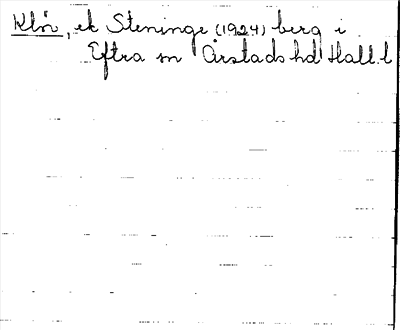 Klör, ek Steninge (1924) berg i
Eftra sn Årstads hd Hall. l